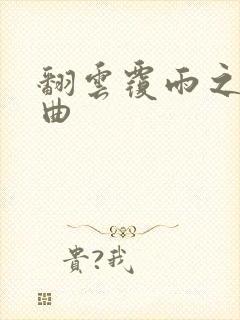 翻雲覆雨之
曲
貴?我